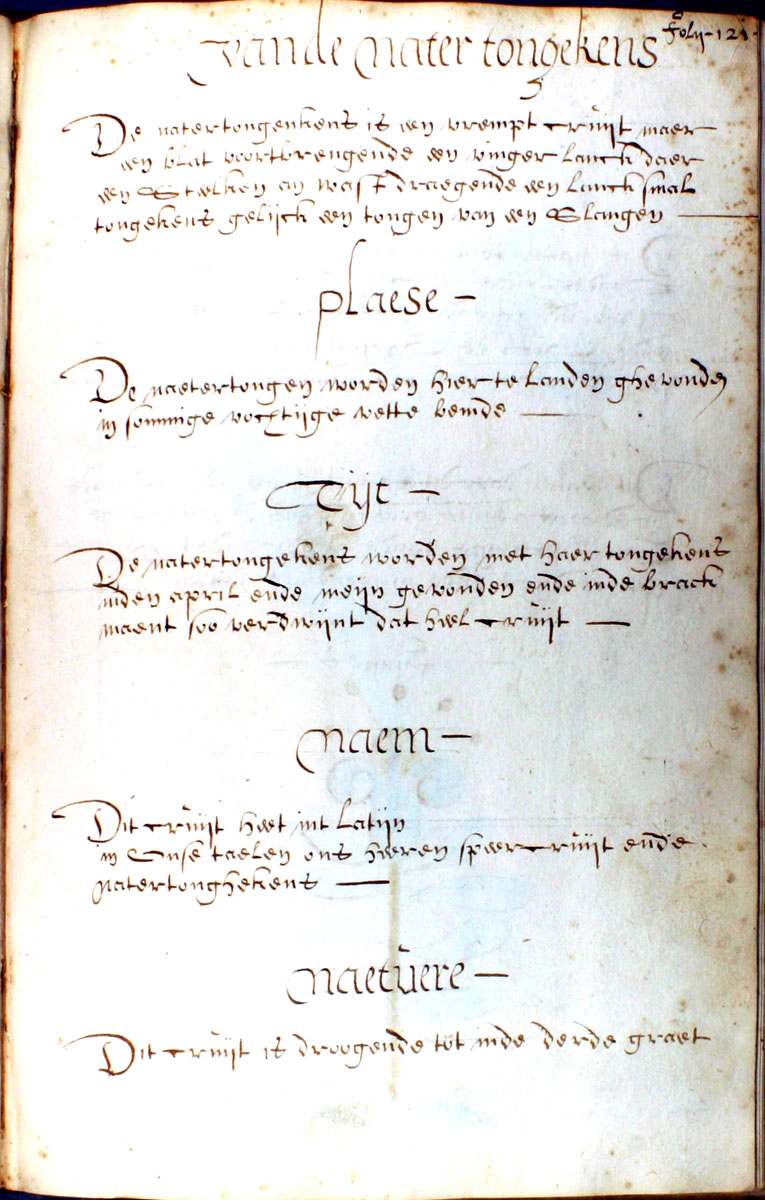 folij · 121 ·
vande nater tongekens
De natertongenkens is een vrempt cruijt maer
een blat voortbrengende een vinger lanck daer
een Steelken an wast draegende een lanck smal
tongekens gelijck een tongen van een Slangen —
plaese —
De naetertongen worden hier te landen ghevonden
in sommige vochtijge vette bemde —
Tijt —
De natertongekens worden met haer tongekens
inden april ende meijn gevonden ende inde brack
maent soo verdwijnt dat heel cruijt —
naem —
Dit cruijt heet int latijn
in Onse taelen ons heeren speercruijt ende
natertonghekens —
naetuere —
Dit cruijt is droogende tot inde derde graet